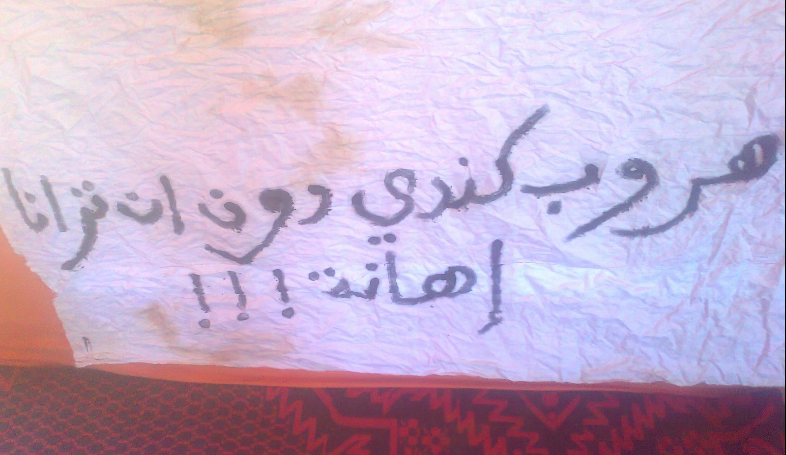 هروب كندي دون ان ترانا
إهانة !!!